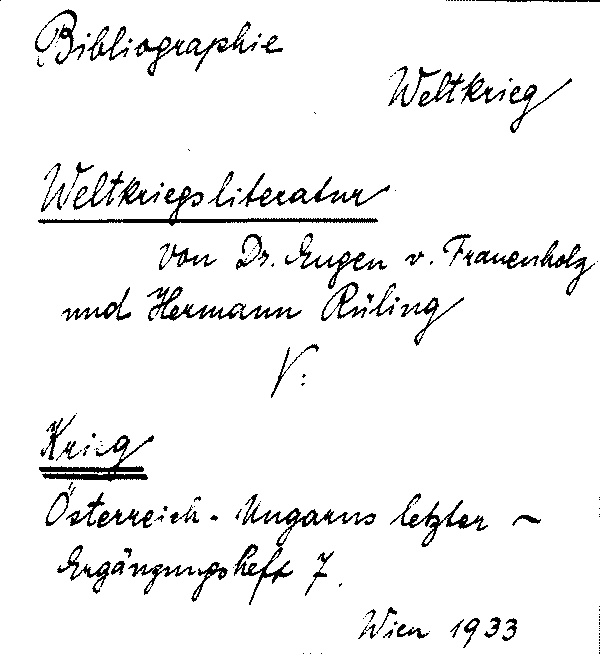 Bibliographie
Weltkrieg
Weltkriegsliteratur
von Dr. Eugen v. Frauenholz
und Hermann Rüling
V:
Krieg
Österreich-Ungarns letzter ~
Ergänzungsheft 7.
Wien 1933